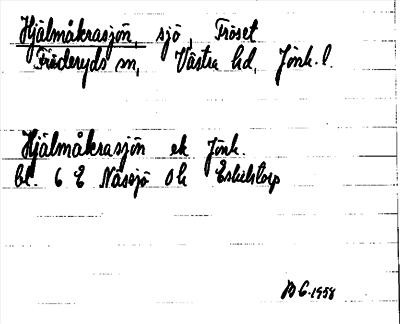 Hjälmåkrasjön, sjö, Fröset
Fröderyds sn, Västra hd, Jönk. l.
Hjälmåkrasjön ek Jönk.
bl. 6 E Nässjö Ok Eskilstorp
1958